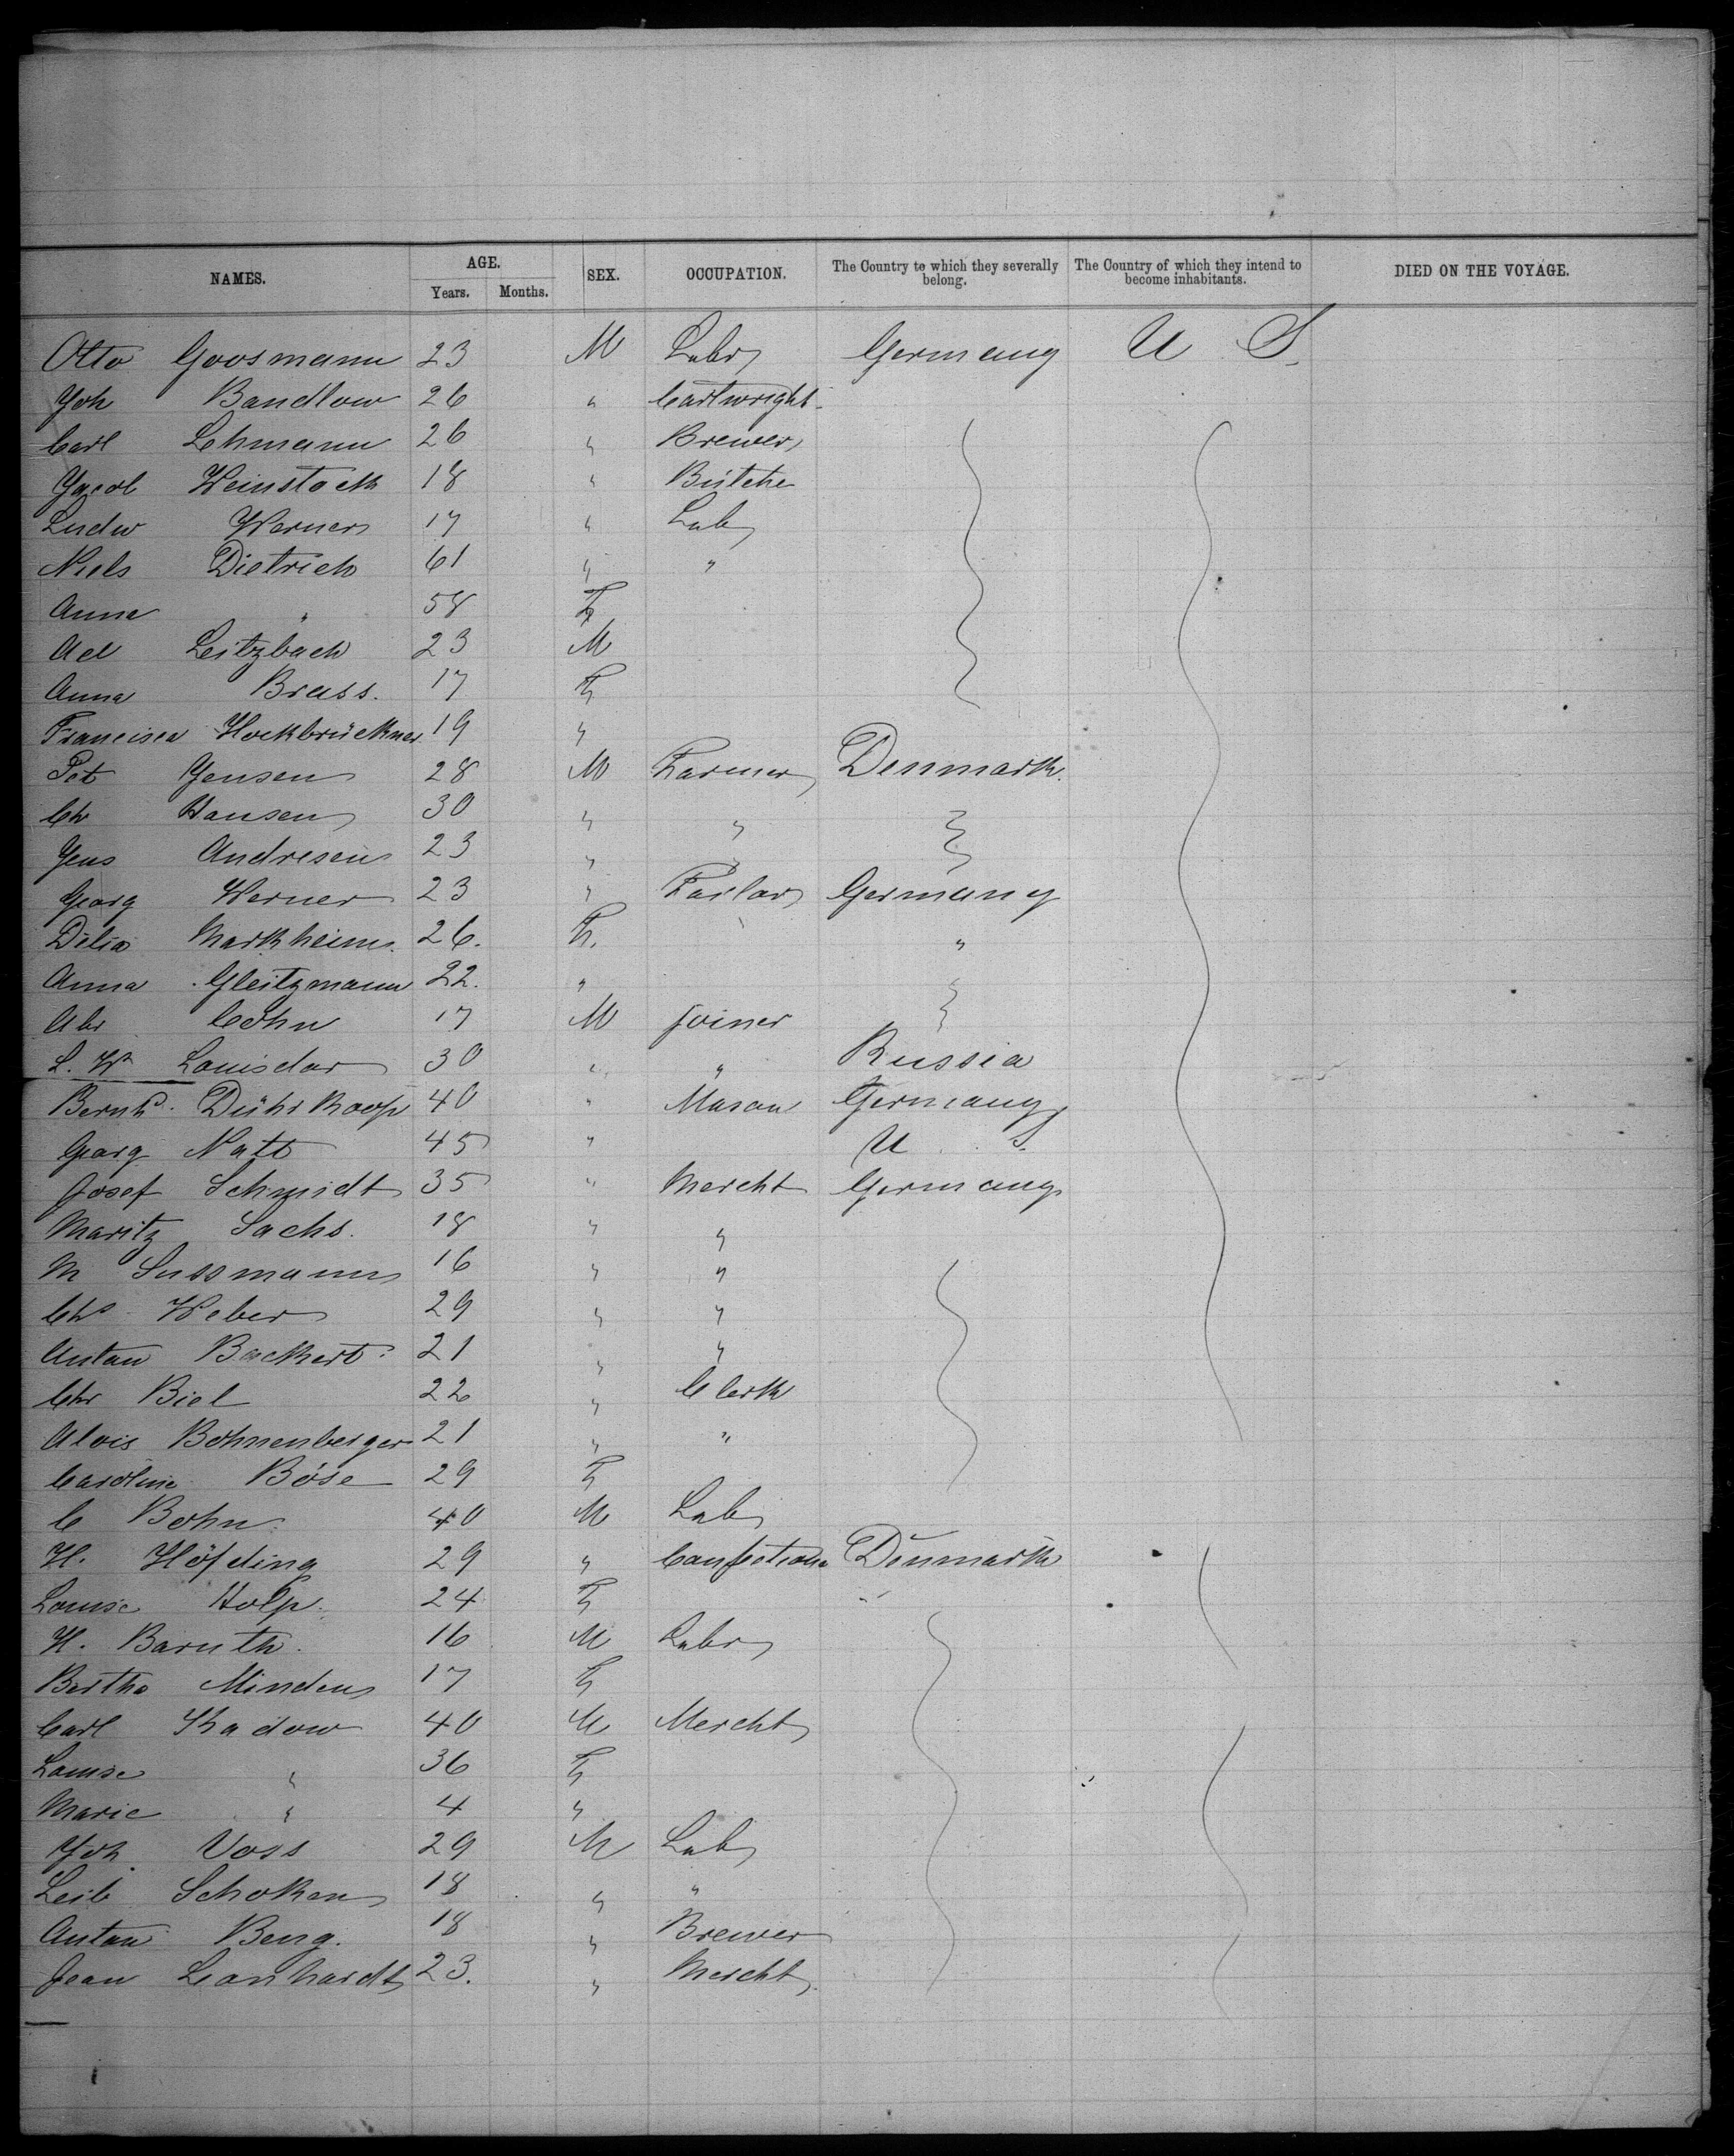 NAMES. AGE. SEX. OCCUPATION. The Country to which they severally belong. The Country of which they intend to become inhabitants. DIED ON THE VOYAGE.
Years. Months.
Otto Goosmann 23 M Labr Germany U S.
Joh Bandlow 26 " Cartwright.
Carl Lehmann 26 " Brewer
Jacob Weinstock 18 "
Ludw Werner 17 " Lab
Niels Dietrich 61 " "
Anna " 58 F
Ad Leitzbach 23 M
Anna Brass. 17 F
Francisca Hockbrückner 19 "
Pet Jensen 28 M Farmer Denmark.
Ch Hansen 30 " "
Jens Andresen 23 " "
Georg Werner 23 " Germany
Delia Markheim. 26. F. "
Anna Gleitzmann 22. "
Abr Cohn 17 M Joiner
L. Wm Louisdor 30 " " Russia
Bernhd. Dührkoop 40 " Mason Germany
Georg Natt 45 " U. S.
Josef Schmidt 35 " Mercht Germany
Moritz Sachs. 18 " "
M Sussmann 16 " "
Chs Weber 29 " "
Anton Backert. 21 " "
Chr Biel 22 " Clerk
Alois Bohnenberger 21 " "
Caroline Böse 29 F
C Bohn. 40 M Lab
H. Höfding 29 " Denmark
Louise Holp. 24 F "
H. Baruth. 16 M Labr
Bertha Minden 17 F
Carl Khadow 40 M Mercht
Louise " 36 F
Marie " 4 "
Joh Voss 29 M Lab
Leib Schoken 18 " "
Anton Beng. 18 " Brewer
Jean Leonhardt 23. " Mercht.